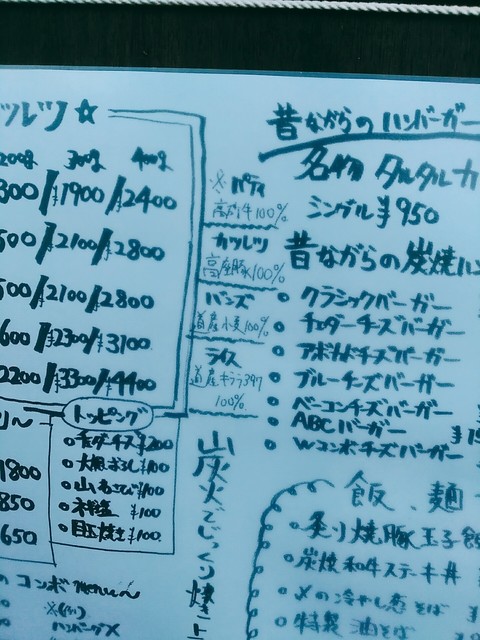 ツレツ☆
200g 300g 400g
300/¥1900/¥2400
500/¥2100/¥2800
500/¥2100/¥2800
600/¥2300/¥3100
2200/¥3300/¥4400
トッピング
チェダーチーズ ¥200
大根おろし ¥100
山わさび ¥100
¥100
目玉焼き ¥100
1800
850
650
コンボ menu〜
ハンバーグ×
※パティ
100%
カツレツ
高座豚100%
バンズ
道産小麦100%
ライス
道産キララ397
100%
炭火でじっくり焼
昔ながらのハンバーガー
名物 タルタルカ
シングル ¥950
昔ながらの炭焼ハン
クラシックバーガー
チェダーチーズバーガー
アボカドチーズバーガー
ブルーチーズバーガー
ベーコンチーズバーガー
ABCバーガー
Wコンボチーズバーガー
飯、麺
炙り焼豚玉子飯
炭焼和牛ステーキ丼
〆の冷やし
特製 油そば